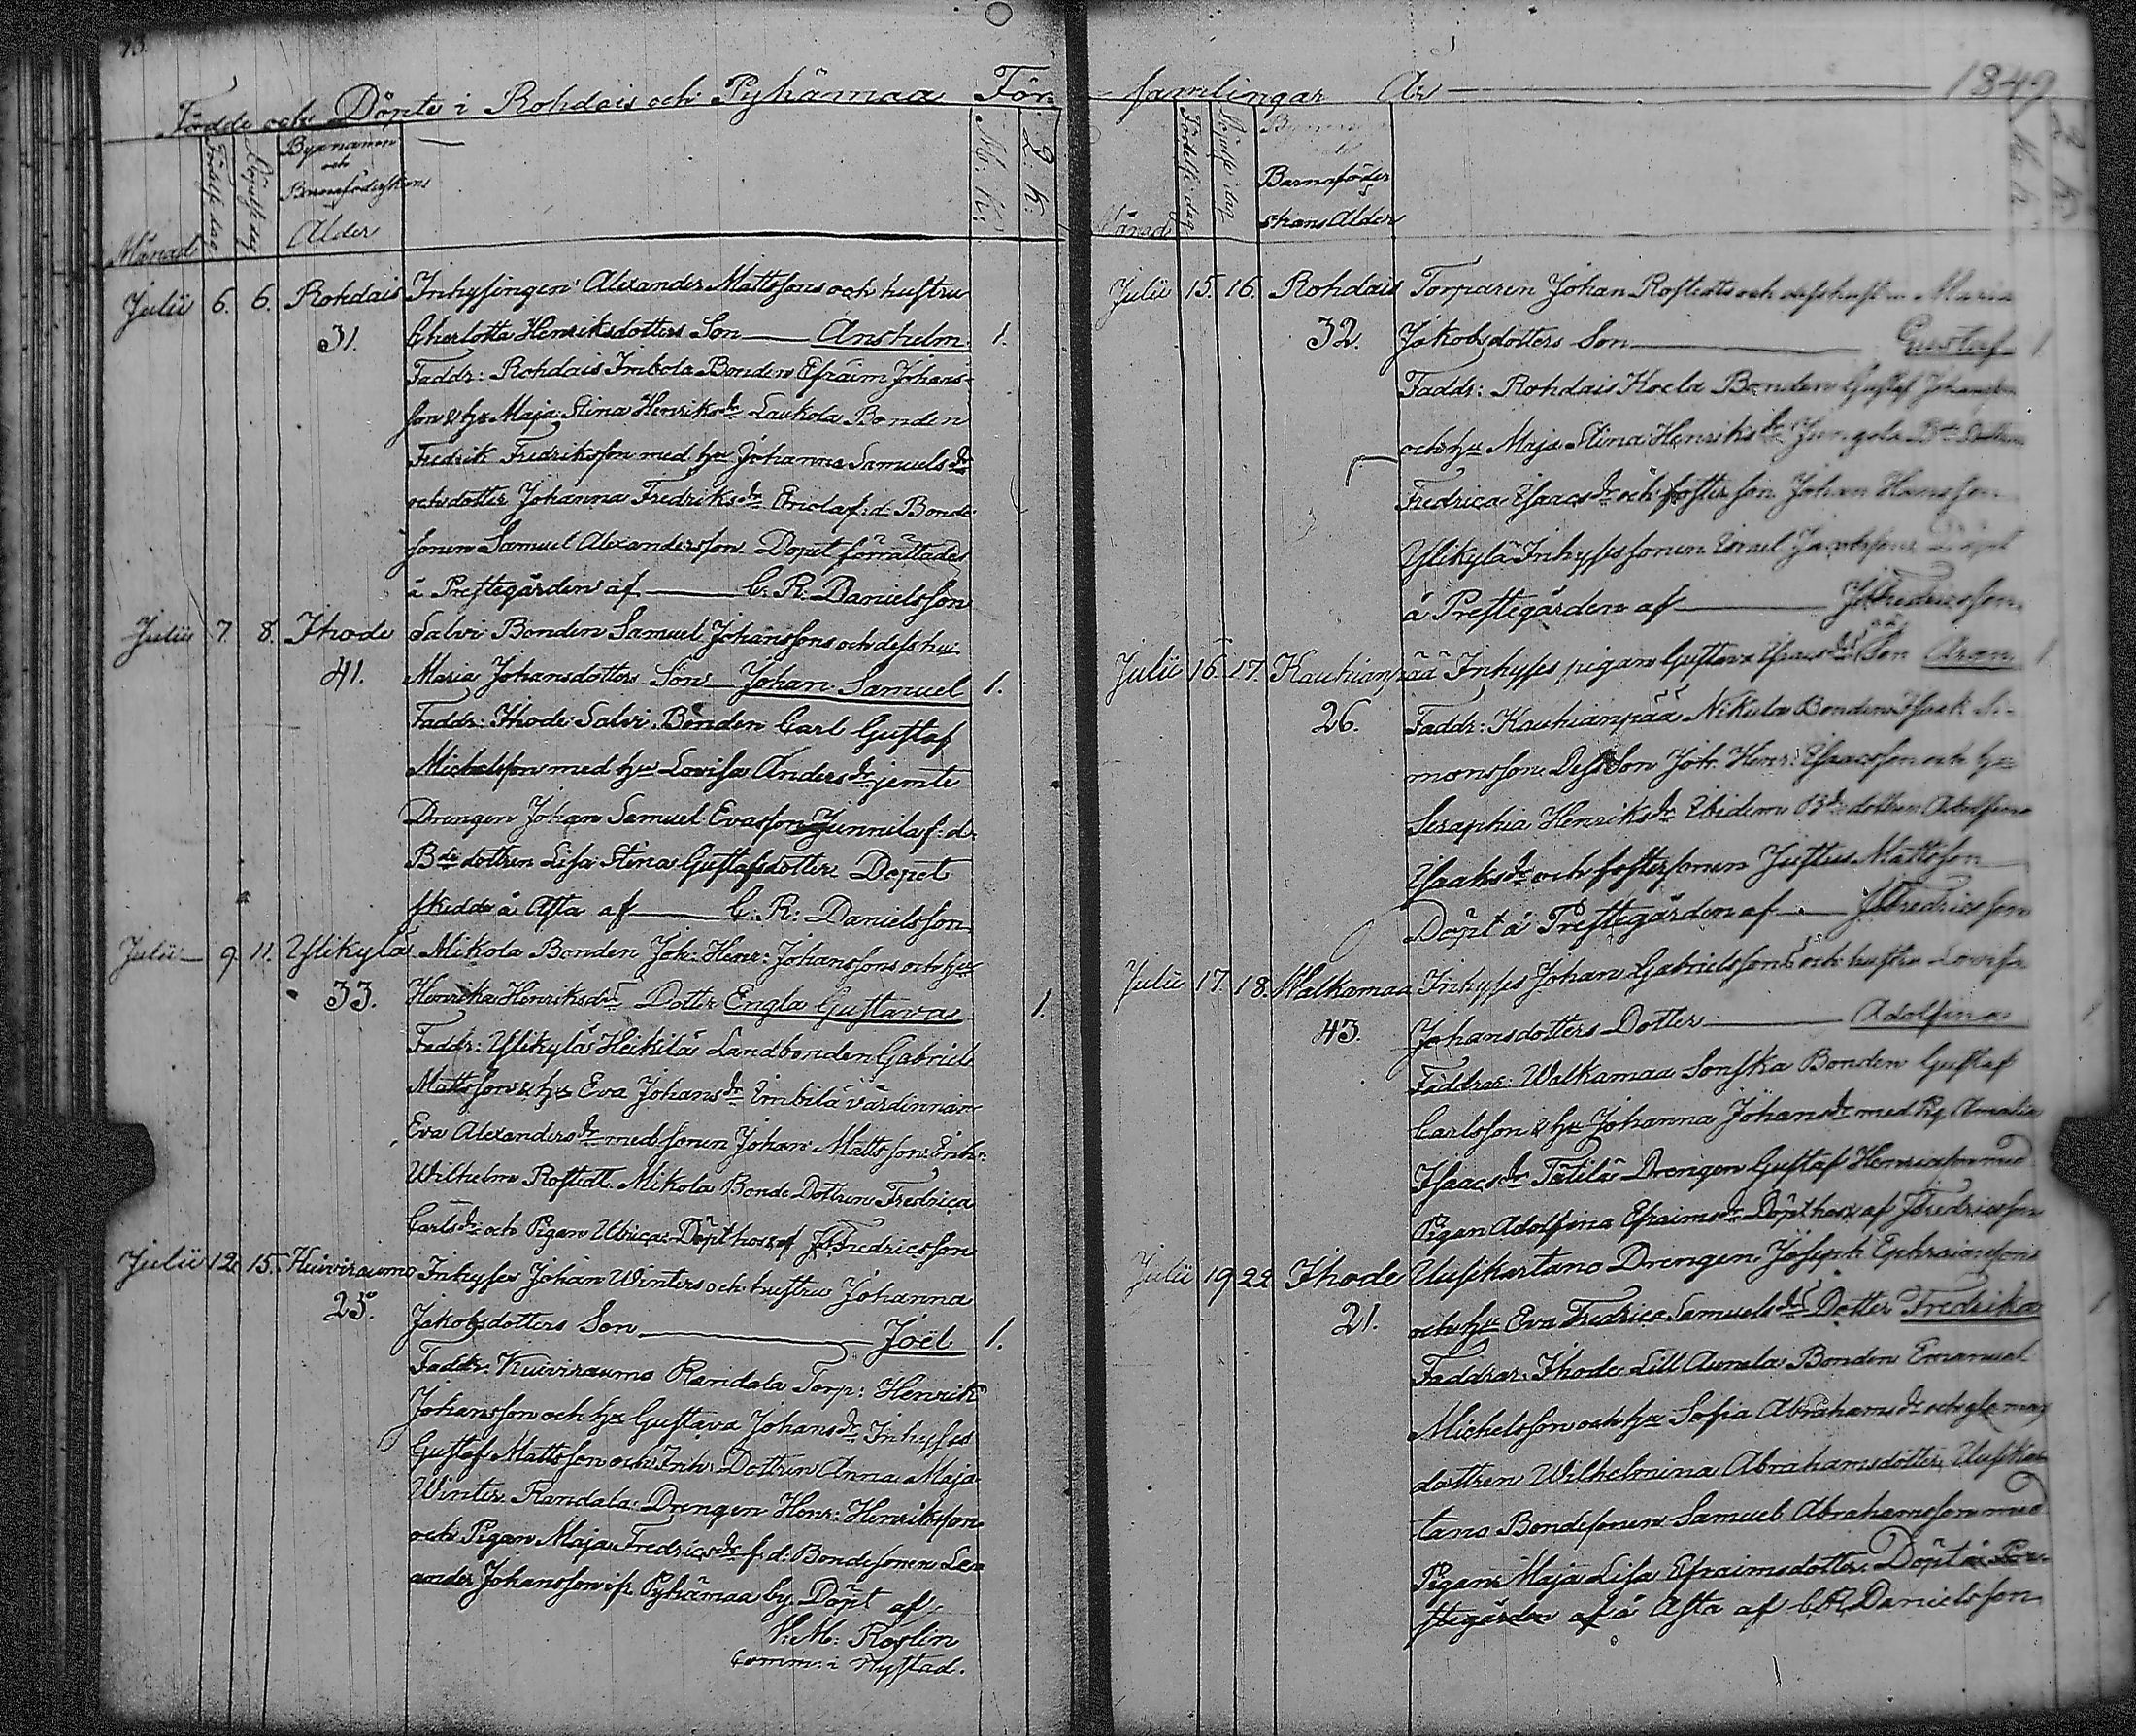 73.
Födde och Döpte i Rohdais och Pyhämaa För-
Månad
Födelse dag
Döpelse dag
Bynamnen
och
Barnaföderskans
Ålder
M. K.
Q. K.
Julii 6. 6. Rohdais Inhysingen Alexander Mattssons och hustru
31. Charlotta Henriksdotters Son — Anshelm. 1.
Faddr: Rohdais Imbola Bonden Efraim Johans-
son & hu Maja Stina Henriksdr Laukola Bonden
Fredrik Fredriksson med hu Johanna Samuels dr
och dotter Johanna Fredriks dr f: d: Bonde
sonen Samuel Alexandersson Döpet förrättades
å Prestegården af — C. R. Danielsson
Julii 7. 8. Ihode Salvi Bonden Samuel Johanssons och dess hu
41. Maria Johansdotters Son Johan Samuel 1.
Faddr: Ihode Salvi Bonden Carl Gustaf
Michelsson med hu Lovisa Anders dr jemte
Drengen Johan Samuel Evasson f: d:
Bde dottren Lisa Stina Gustafsdotter Döpet
skedde å Asta af — C. R. Danielsson
Julii — 9. 11. Ylikylä Mikola Bonden Joh: Henr: Johanssons och hu
33. Henrika Henriksdrs Dotter Engla Gustava 1.
Faddr: Ylikylä Heikilä Landbonden Gabriel
Mattsson & hu Eva Johans dr Imbilä värdinnan
Eva Alexanders dr med sonen Johan Mattsson Inh:
Wilhelm Rostedt. Mikola Bonde Dottren Fredrica
Carls dr och Pigan Ulrica Döpt hos af Fredricsson
Julii 12. 15. Kuiviraumo Inhyses Johan Winters och hustru Johanna
25. Jakobsdotters Son — Joël 1.
Faddr: Kuiviraumo Randala Torp: Henrik
Johansson och hu Gustava Johans dr Inhyses
Gustaf Mattsson och Inh: Dottren Anna Maja
Winter Randala Drengen Henr: Henriksson
och Pigan Maja Fredrics dr f. d: Bondesonen
ander Johansson ifr. Pyhämaa by. Döpt af
V: M: Roslin
Comm: i Nystad.
samlingar År — 1849
Månad
Födelse dag
Döpelse dag
Barnaföder
skans Ålder
M. K.
Q. K.
Julii 15. 16. Rohdais Torparen Johan Rostedts och dess hustru Maria
32. Jakobsdotters Son — Gustaf 1
Faddr: Rohdais Kocla Bonden Gustaf Johansson
och hu Maja Stina Henriks dr
Fredrica Isaacs dr och foster son Johan Hansson
Ylikylä Inhyses sonen Israel Döpt
å Prestegården af — Fredricsson
Julii 16. 17. Kauhianpää Inhyses pigan Gustava Isaacs drs oä Son Aron 1
26. Faddr: Kauhianpää Nikula Bonden Isaak Si-
monsson Dess Son Joh. Henr: Isaacsson och hu
Seraphia Henriks dr Ibidem Bde dottren Adolfina
Isaaks dr och fostersonen Justus Mattsson
Döpt å Prestegården af — Fredricsson
Julii 17. 18. Walkamaa Inhyses Johan Gabrielssons och hustru Lovisa
43. Johansdotters Dotter — Adolfina 1
Faddrar: Walkamaa Sonska Bonden Gustaf
Carlsson & hu Johanna Johans dr med Pig. Amalia
Isaacs dr Tätilä Drengen Gustaf Henricson med
Pigan Adolfina Efraims dr Döpt hos af Fredricsson
Julii 19. 22. Ihode Uusikartano Drengen Joseph Ephraimssons
21. och hu Eva Fredrica Samuels drs Dotter Fredrika 1
Faddrar: Ihode Lill Aunela Bonden Emanuel
Michelsson och hu Sofia Abrahams dr och
dottren Wilhelmina Abrahamsdotter, Uusikar
tano Bondesonen Samuel Abrahamsson med
Pigan Maja Lisa Efraimsdotter. Döpt å Pre-
stegården af å Asta af C. R. Danielsson